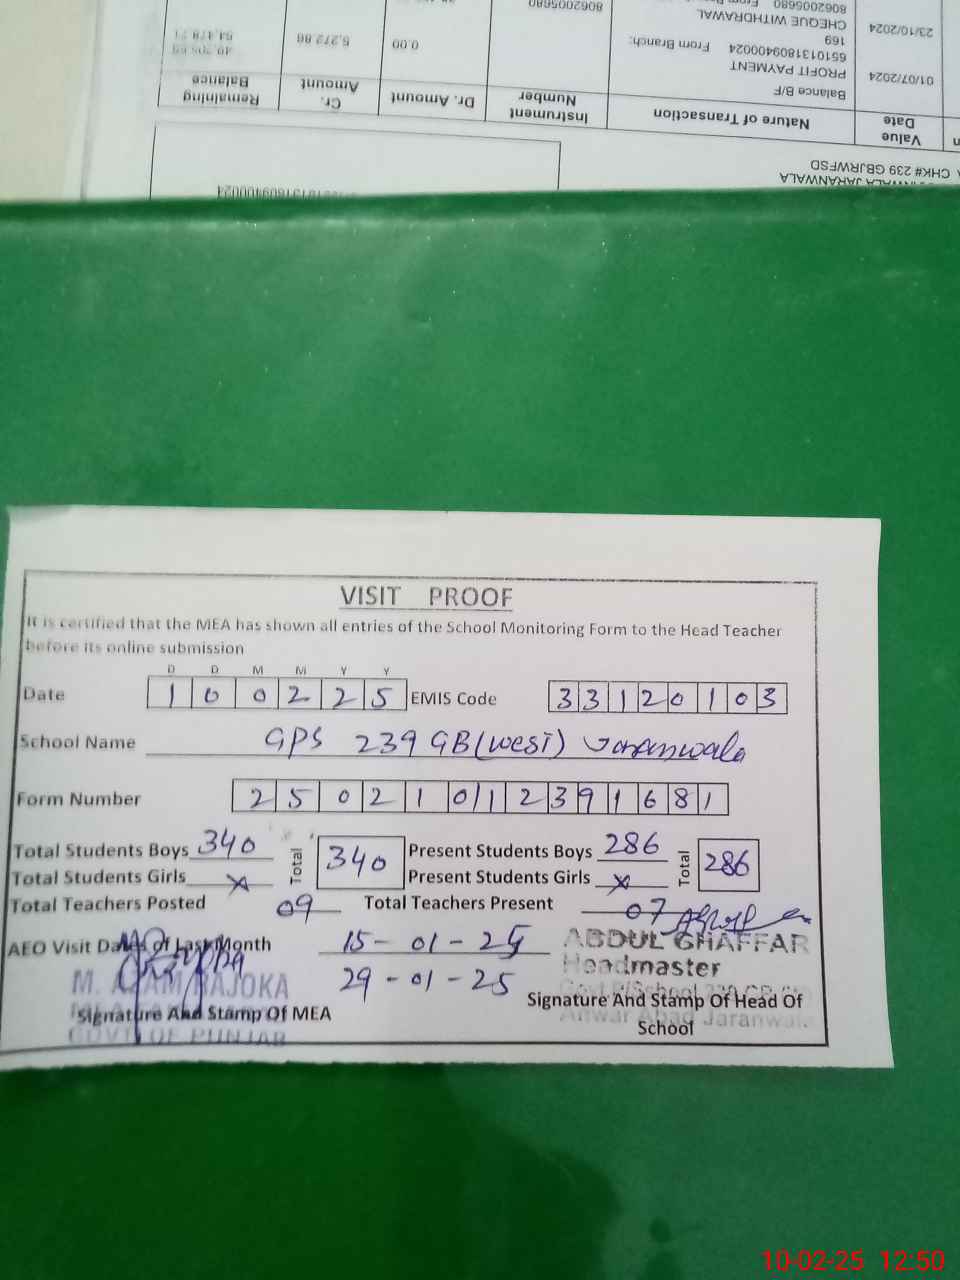 CHK# 239 GBJRWFSD
Value Date
Nature of Transaction
Instrument Number
Dr. Amount
Cr. Amount
Remaining Balance
Balance B/F
01/07/2024
PROFIT PAYMENT
0.00
5,272.86
From Branch:
169
23/10/2024
CHEQUE WITHDRAWAL
8062005680
VISIT PROOF
It is certified that the MEA has shown all entries of the School Monitoring Form to the Head Teacher
before its online submission
D D M M Y Y
Date 1 0 0 2 2 5 EMIS Code 3 3 1 2 0 1 0 3
School Name GPS 239 GB (West) Jaranwala
Form Number 2 5 0 2 1 0 1 2 3 9 1 6 8 1
Total Students Boys 340 Total 340 Present Students Boys 286 Total 286
Total Students Girls x Present Students Girls x
Total Teachers Posted 09 Total Teachers Present 07
AEO Visit Dates of Last Month 15-01-25
29-01-25
ABDUL GHAFFAR
Headmaster
Anwar Abad Jaranwala
M. AZAM RAJOKA
GOVT OF PUNJAB
Signature And Stamp Of MEA
Signature And Stamp Of Head Of
School
10-02-25 12:50